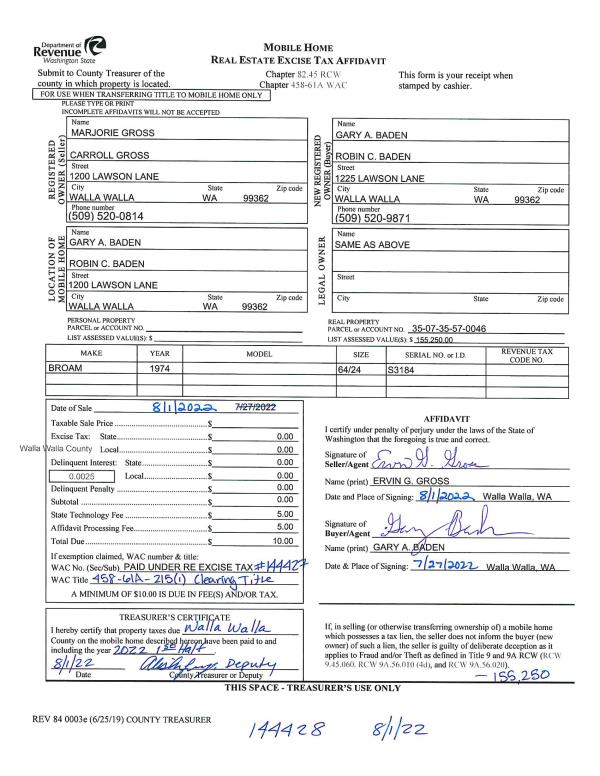 Department of
Revenue
Washington State
MOBILE HOME
REAL ESTATE EXCISE TAX AFFIDAVIT
Submit to County Treasurer of the
county in which property is located.
Chapter 82.45 RCW
Chapter 458-61A WAC
This form is your receipt when
stamped by cashier.
FOR USE WHEN TRANSFERRING TITLE TO MOBILE HOME ONLY
PLEASE TYPE OR PRINT
INCOMPLETE AFFIDAVITS WILL NOT BE ACCEPTED
REGISTERED
OWNER (Seller)
Name
MARJORIE GROSS
CARROLL GROSS
Street
1200 LAWSON LANE
City State Zip code
WALLA WALLA WA 99362
Phone number
(509) 520-0814
NEW REGISTERED
OWNER (Buyer)
Name
GARY A. BADEN
ROBIN C. BADEN
Street
1225 LAWSON LANE
City State Zip code
WALLA WALLA WA 99362
Phone number
(509) 520-9871
LOCATION OF
MOBILE HOME
Name
GARY A. BADEN
ROBIN C. BADEN
Street
1200 LAWSON LANE
City State Zip code
WALLA WALLA WA 99362
LEGAL OWNER
Name
SAME AS ABOVE
Street
City State Zip code
PERSONAL PROPERTY
PARCEL or ACCOUNT NO.
LIST ASSESSED VALUE(S): $
REAL PROPERTY
PARCEL or ACCOUNT NO. 35-07-35-57-0046
LIST ASSESSED VALUE(S): $ 155,250.00
MAKE YEAR MODEL SIZE SERIAL NO. or I.D. REVENUE TAX CODE NO.
BROAM 1974 64/24 S3184
Date of Sale 8/1/2022 7/27/2022
Taxable Sale Price $
Excise Tax: State $ 0.00
Walla Walla County Local $ 0.00
Delinquent Interest: State $ 0.00
0.0025 Local $ 0.00
Delinquent Penalty $ 0.00
Subtotal $ 0.00
State Technology Fee $ 5.00
Affidavit Processing Fee $ 5.00
Total Due $ 10.00
If exemption claimed, WAC number & title:
WAC No. (Sec/Sub) PAID UNDER RE EXCISE TAX #144427
WAC Title 458-61A-215(1) Clearing Title
A MINIMUM OF $10.00 IS DUE IN FEE(S) AND/OR TAX.
AFFIDAVIT
I certify under penalty of perjury under the laws of the State of
Washington that the foregoing is true and correct.
Signature of
Seller/Agent Ervin G. Gross
Name (print) ERVIN G. GROSS
Date and Place of Signing: 8/1/2022 Walla Walla, WA
Signature of
Buyer/Agent Gary Baden
Name (print) GARY A. BADEN
Date & Place of Signing: 7/27/2022 Walla Walla, WA
TREASURER'S CERTIFICATE
I hereby certify that property taxes due Walla Walla
County on the mobile home described hereon have been paid to and
including the year 2022 1st Half
8/1/22 Deputy
Date County Treasurer or Deputy
If, in selling (or otherwise transferring ownership of) a mobile home
which possesses a tax lien, the seller does not inform the buyer (new
owner) of such a lien, the seller is guilty of deliberate deception as it
applies to Fraud and/or Theft as defined in Title 9 and 9A RCW (RCW
9.45.060, RCW 9A.56.010 (4d), and RCW 9A.56.020).
- 155,250
THIS SPACE - TREASURER'S USE ONLY
REV 84 0003e (6/25/19) COUNTY TREASURER
144428 8/1/22